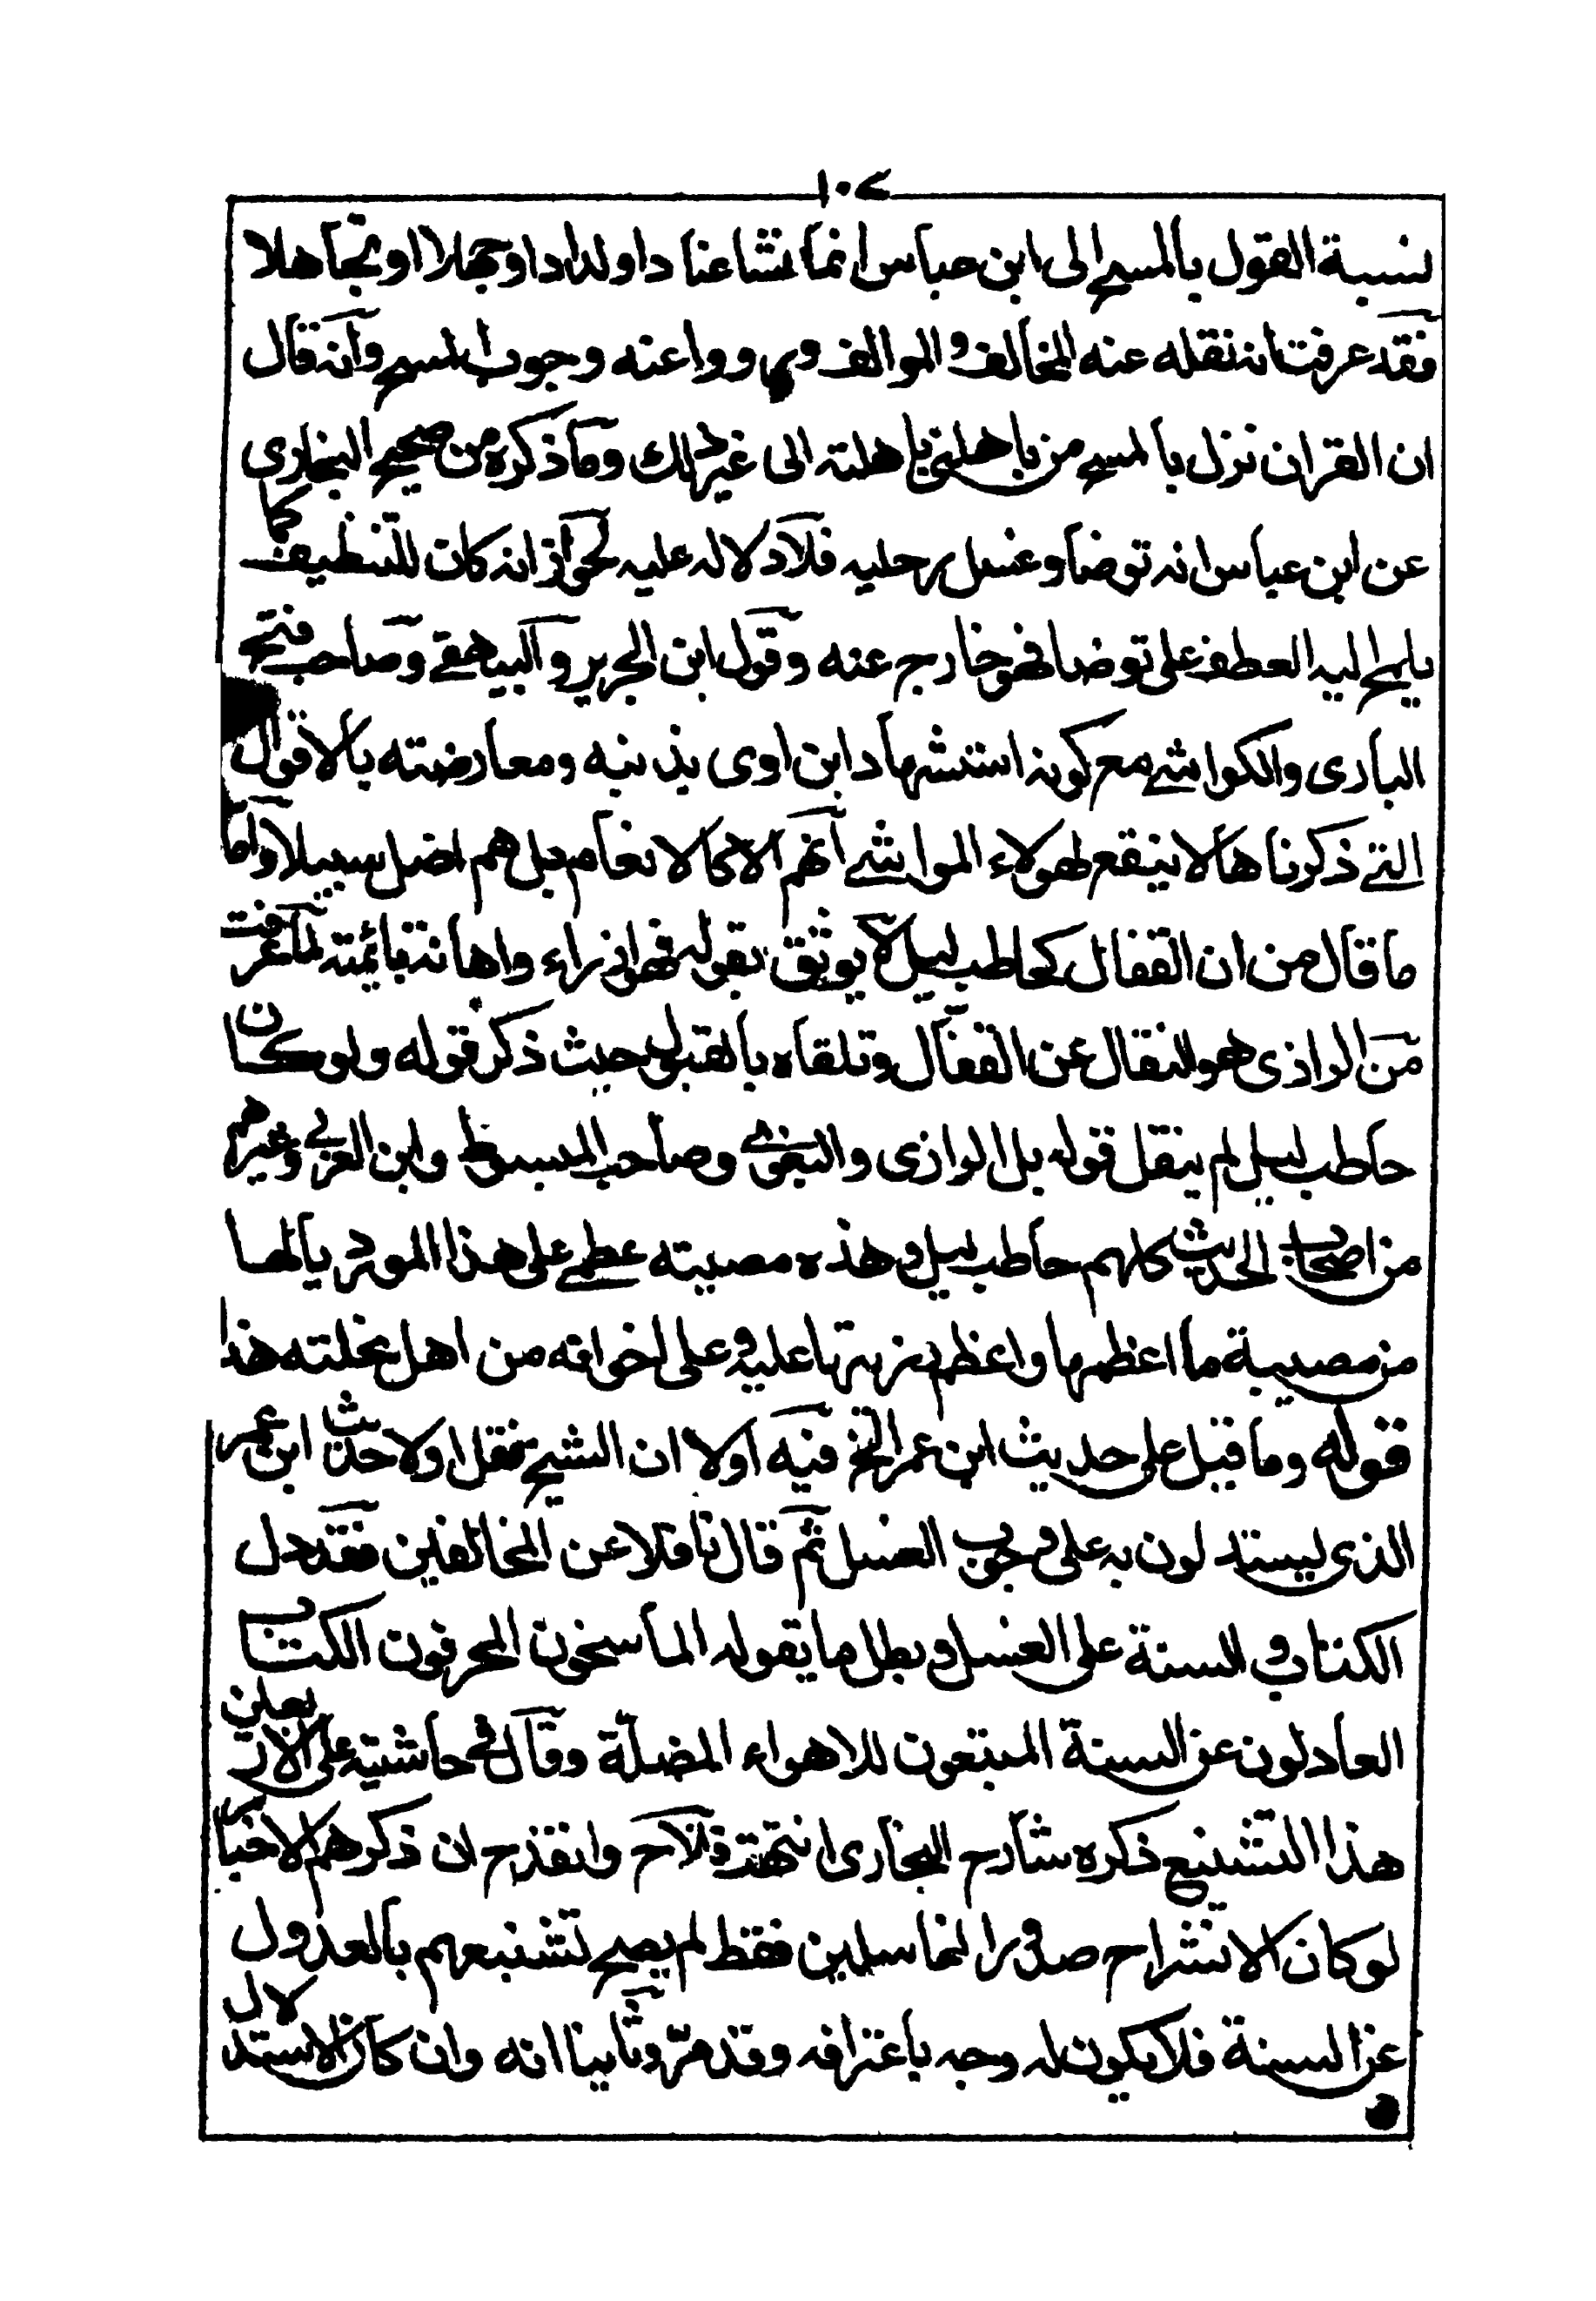 ١٠٧
نسبة القول بالمسح الى ابن عباس انما نشا عنادا ولدادا وجهلا او تجاهلا
فقد عرفت انه نقله عنه المخالف و الموالف ورووا عنه وجوب المسح وانه قال
ان القران نزل بالمسح من باهلنى باهلته الى غير ذلك وما ذكره من صحيح البخارى
عن ابن عباس انه توضا وغسل رجليه فلا دلاله عليه لجواز انه كان للتنظيف كما
يلمح اليه العطف على توضا فهو خارج عنه وقول ابن الجرير والبيهقے وصاحب فتح
البارى والكواشے مع كونه استشهاد ابن اوى بذنبه ومعارضته بالاقوال
التے ذكرناها لا ينفع لهولاء المواشے انهم الا كالانعام بل هم اضل سبيلا واما
ما قال من ان القفال كحاطب ليل لا يوثق بقوله فهو ازراء واهانة بائمته لما عرفت
من الرازى هو النقال عن القفال وتلقاه بالقبول حيث ذكر قوله ولو كان
حاطب ليل لم ينقل قوله بل الرازى والبغوى وصاحب المبسوط وابن العربي وغيرهم
من اصحاب الحديث كلهم حاطب ليل وهذه مصيبته عظمے على هذا المورد يالها
من مصيبة ما اعظمها واعظم رزيتها عليه وعلى اخوانه من اهل نحلته هذا
قوله وما قيل على حديث ابن عمر الخ فيه اولا ان الشيخ نقل اولا حديث ابن عمر
الذى ليستدلون به على وجوب الغسل ثم قال ناقلا عن المخالفين فقد دل
الكتاب والسنة على الغسل وبطل ما يقوله الماسخون المحرفون الكتاب
العادلون عن السنة المتبعون للاهواء المضلة وقال فى حاشيته على الاثر بعلن
هذا التشنيع ذكره شارح البخارى انتهت فلاح وانقدح ان ذكرهم الاخبار
لو كان لانشراح صدور الغاسلين فقط لم يصح تشنيعهم بالعدول
عن السنة فلا يكون له وجه باعترافه وقد مر وثانيا انه وان كان الاستدلال